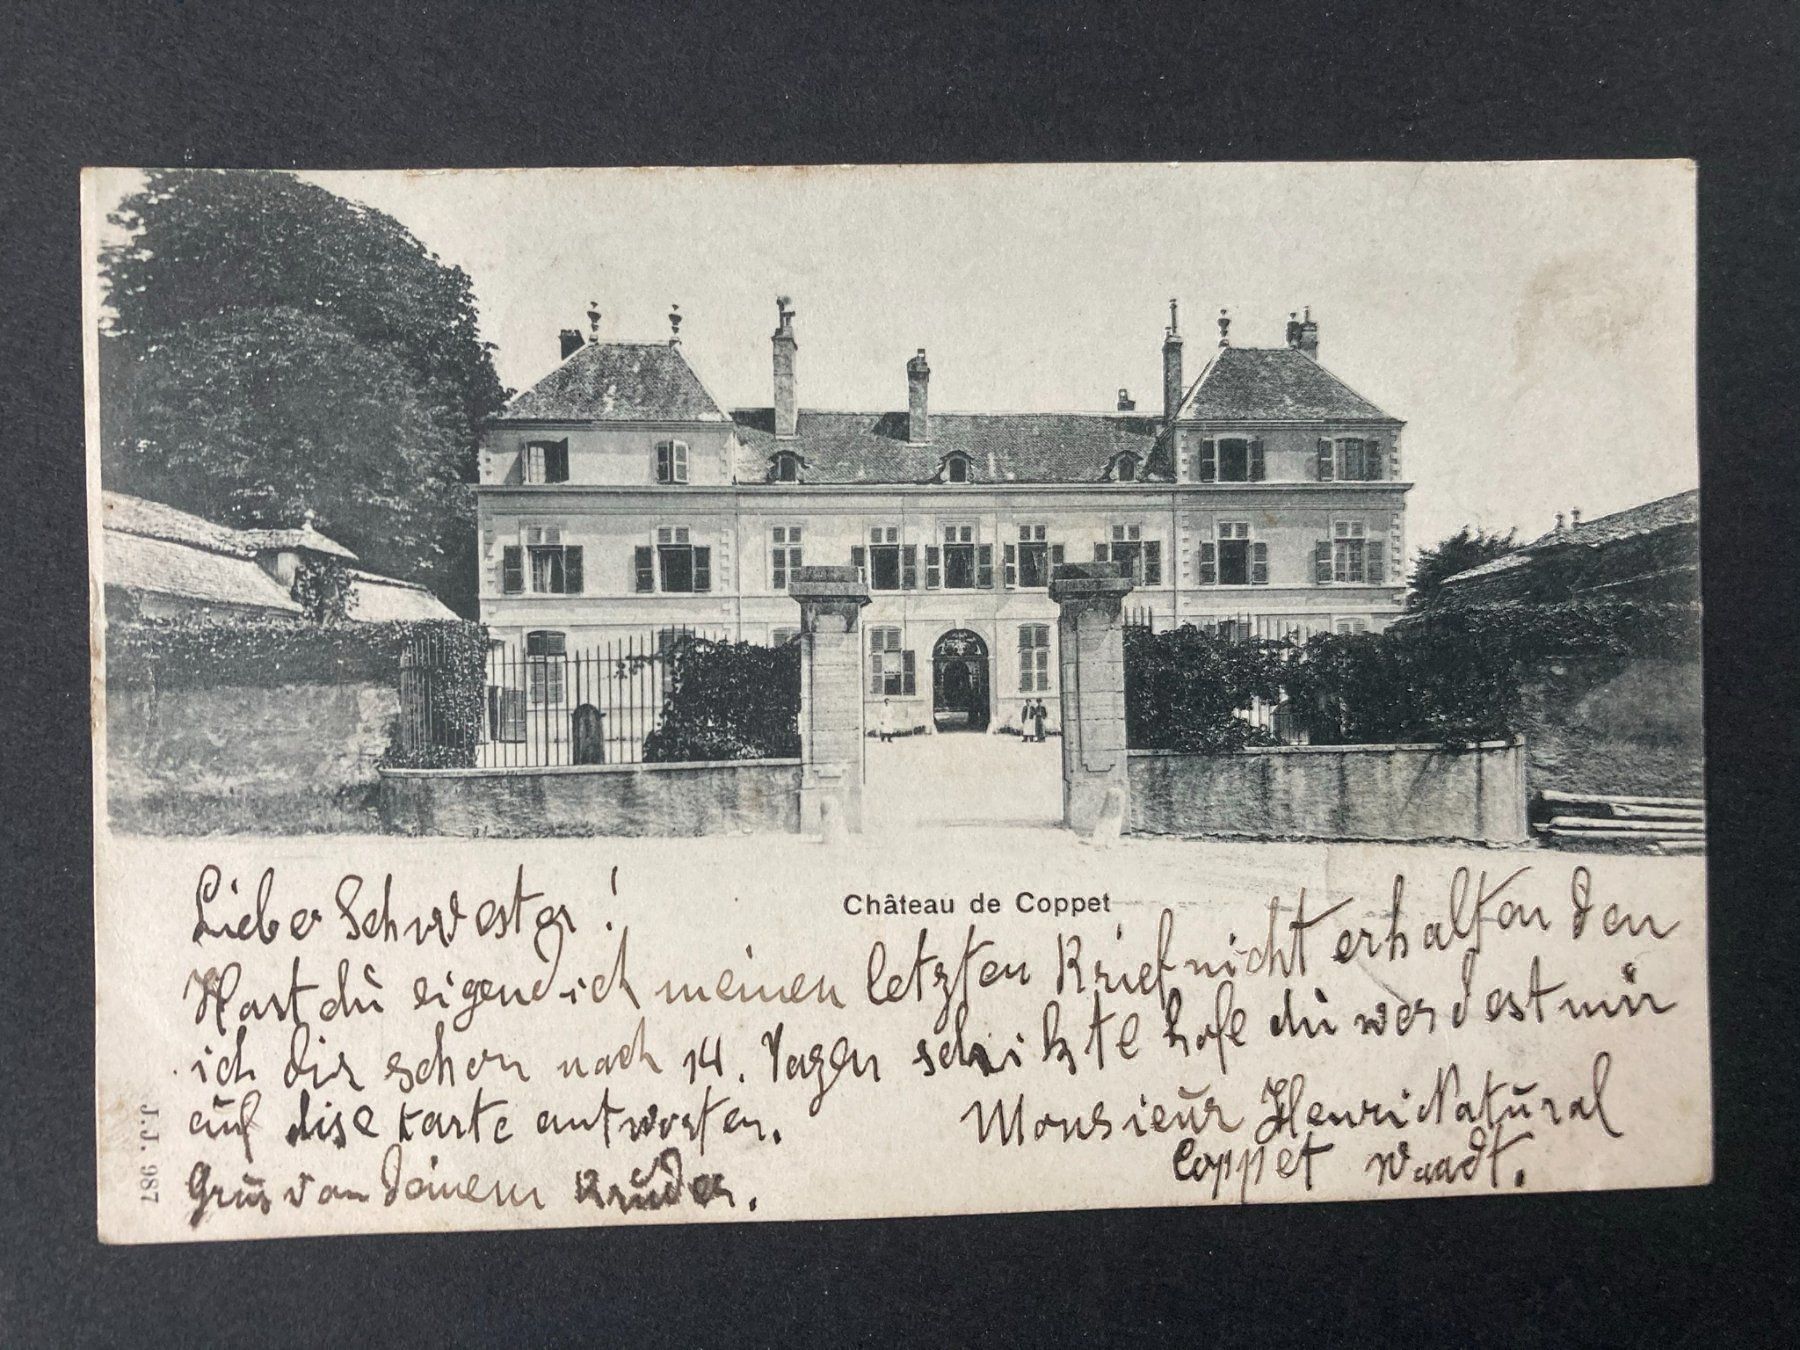 Château de Coppet
Lieber Schwester!
Hast dŭ eigendich meinen letzten Brief nicht erhalten den
ich dir schon nach 14. Tagen schikte hofe dŭ werdest mir
aŭf dise karte antworten.
Grŭs von deinem Brŭder.
Monsieŭr Henri Natŭral
Coppet Waadt.
J.J. 987